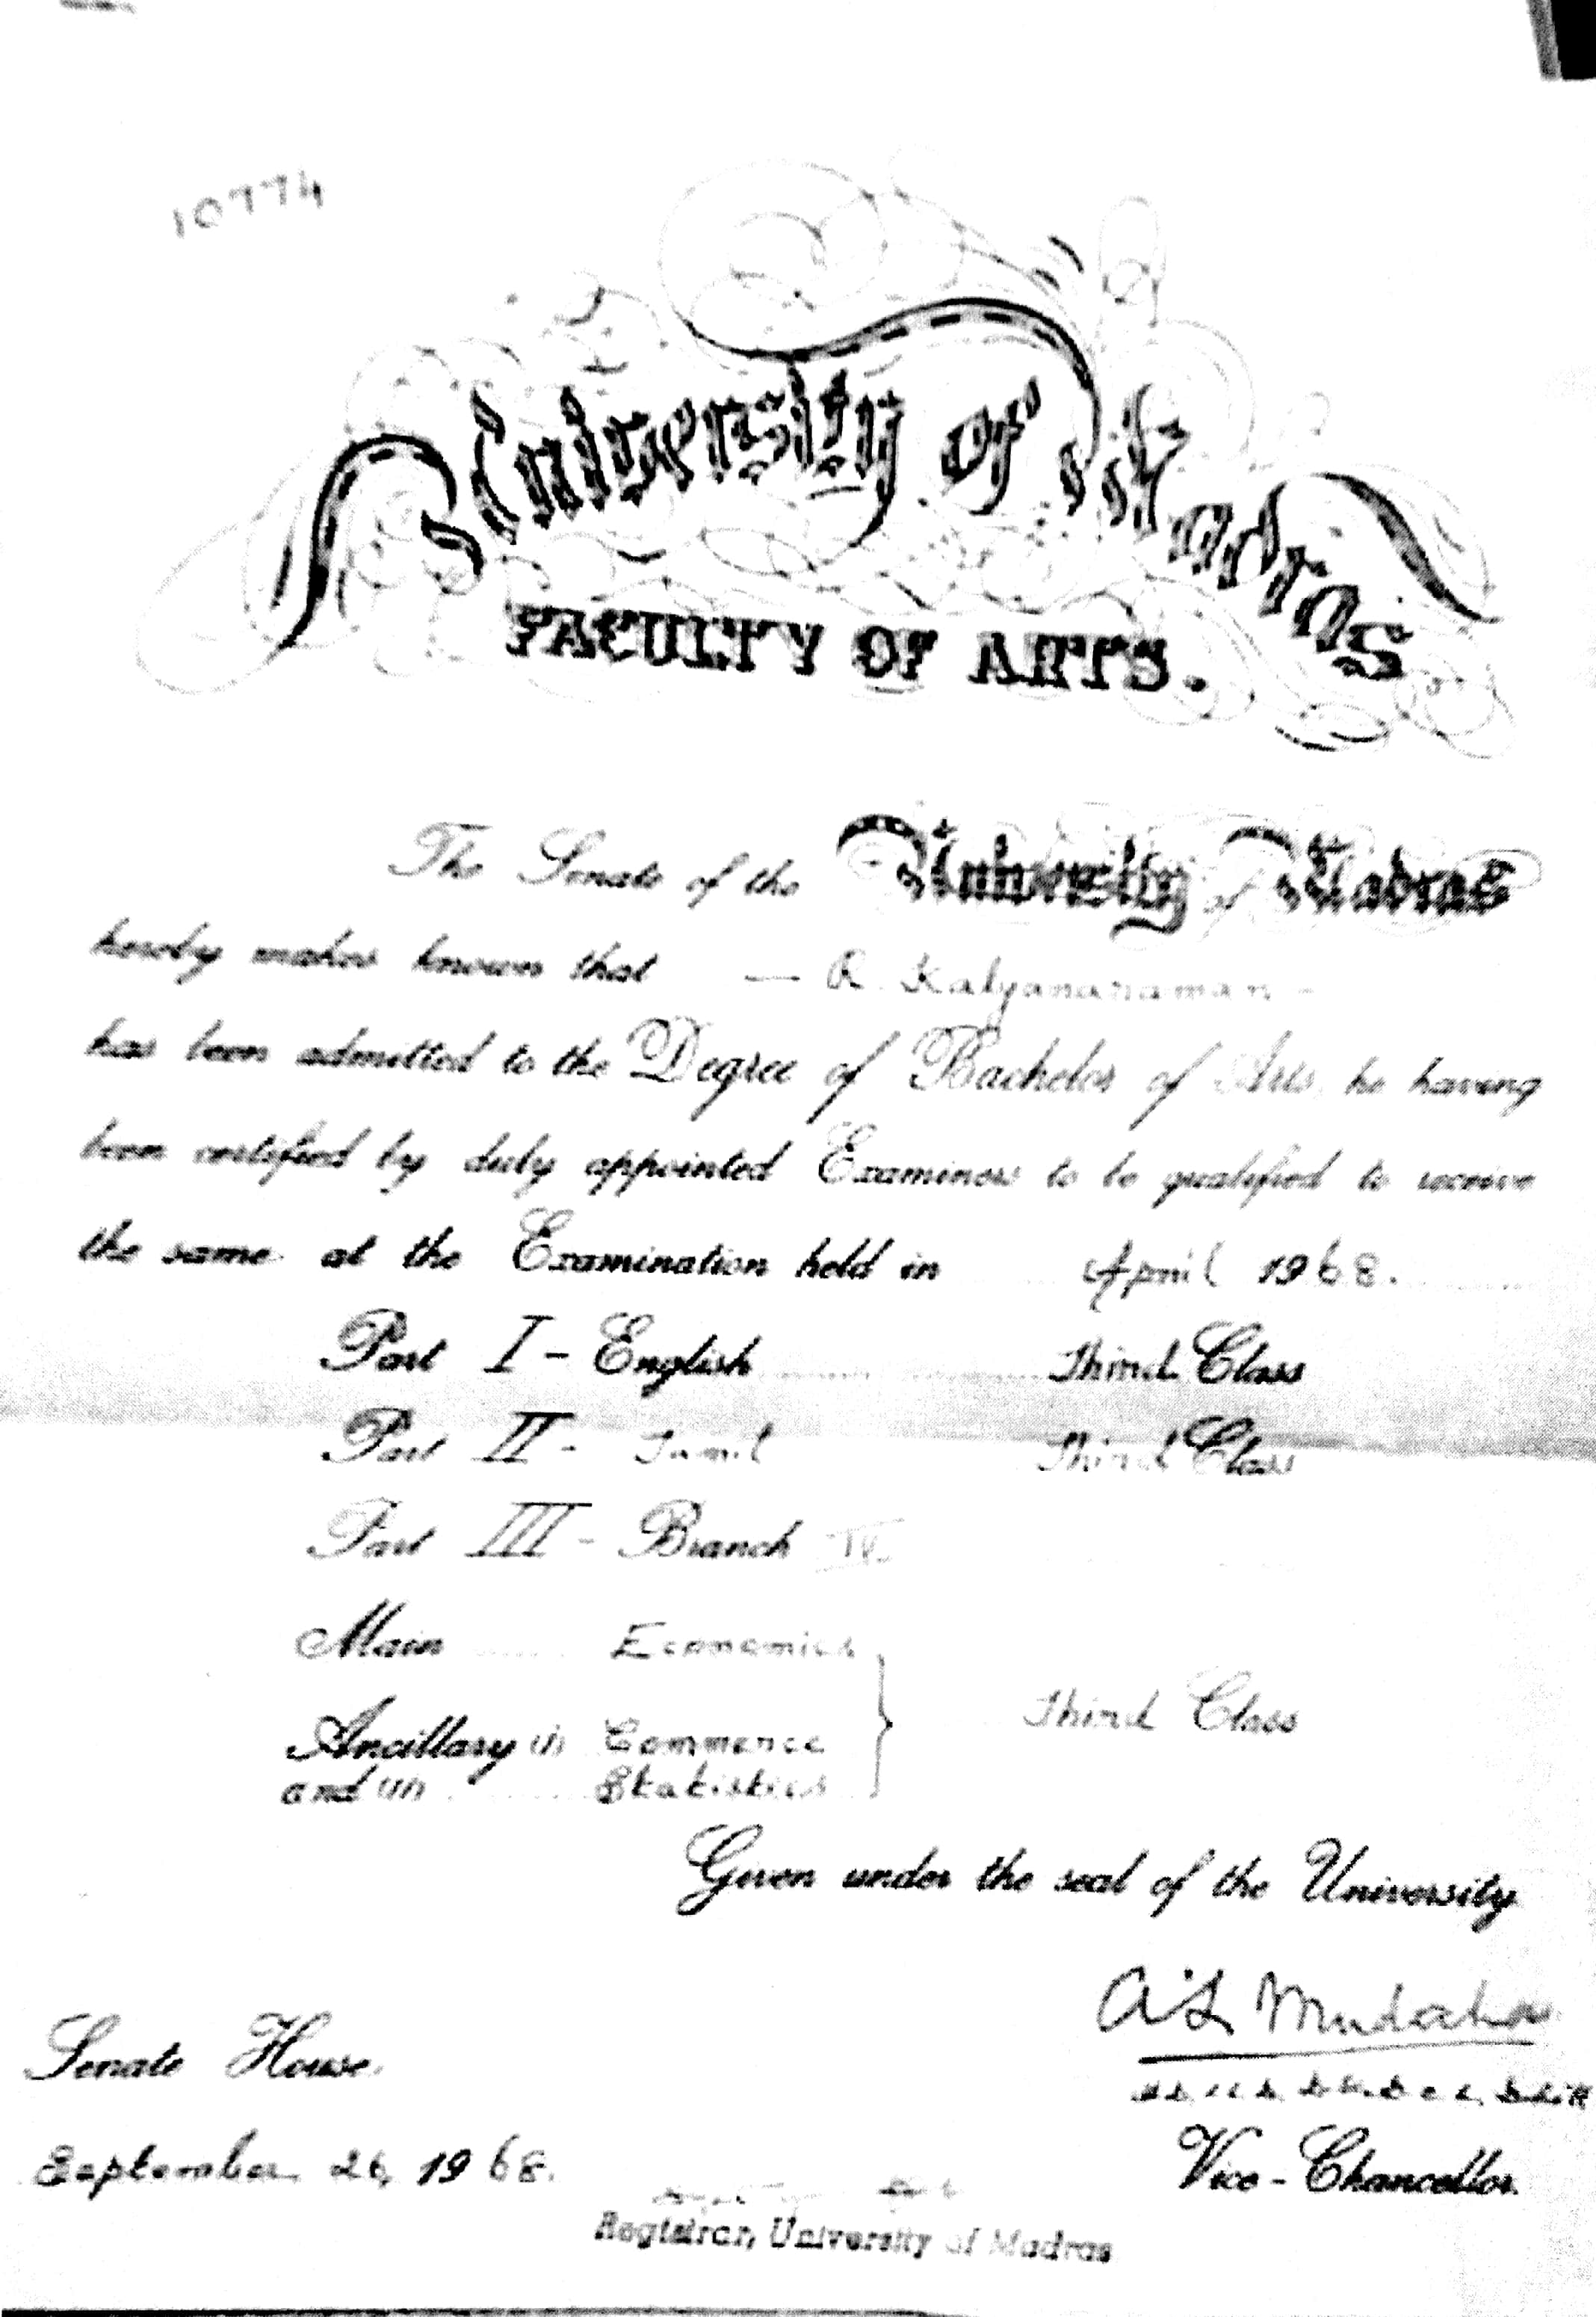 10774
University of Madras
FACULTY OF ARTS.
The Senate of the University of Madras
hereby makes known that — R. Kalyanaraman —
has been admitted to the Degree of Bachelor of Arts, he having
been certified by duly appointed Examiners to be qualified to receive
the same at the Examination held in April 1968.
Part I - English Third Class
Part II - Tamil Third Class
Part III - Branch IV
Main Economics
Third Class
Ancillary (i) Commerce
and (ii) Statistics
Given under the seal of the University
A L Mudaliar
Senate House.
Vice-Chancellor.
September 26, 1968.
Registrar, University of Madras